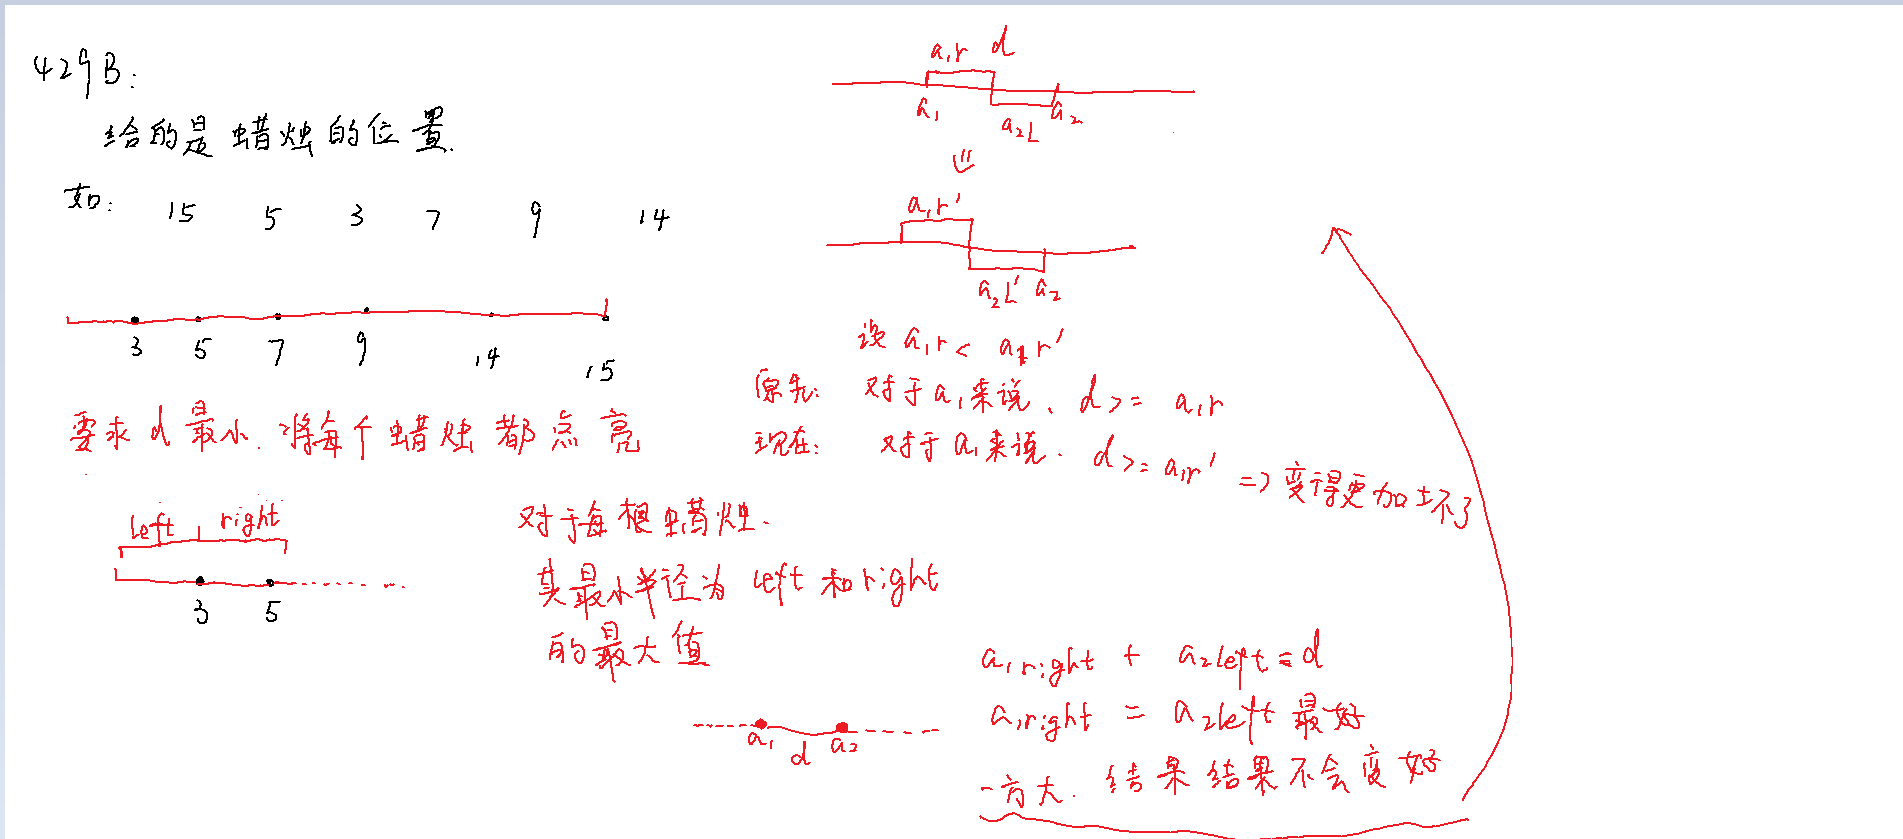 429B:
给的是蜡烛的位置.
如: 15 5 3 7 9 14
3 5 7 9 14 15
要求d最小.将每个蜡烛都点亮
left right
3 5
对于每根蜡烛.
其最小半径为left和right
的最大值
a1r d
a1 a2L a2
a1r'
a2L' a2
设 a1r < a1r'
原先: 对于a1来说、d>= a1r
现在: 对于a1来说. d>= a1r' => 变得更加坏了
a1right + a2left = d
a1right = a2left 最好
一方大. 结果结果不会变好
a1 d a2